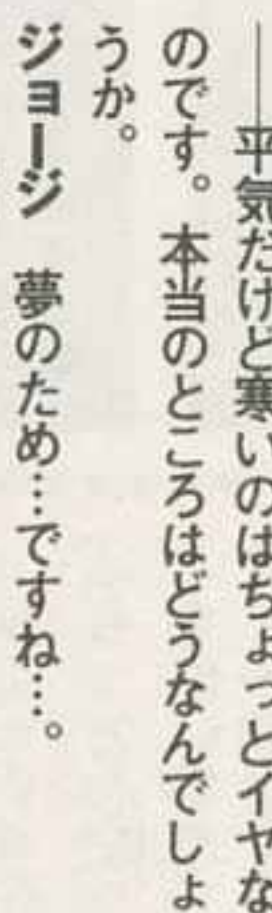 ――平気だけど寒いのはちょっとイヤな
のです。本当のところはどうなんでしょ
うか。
ジョージ　夢のため…ですね…。